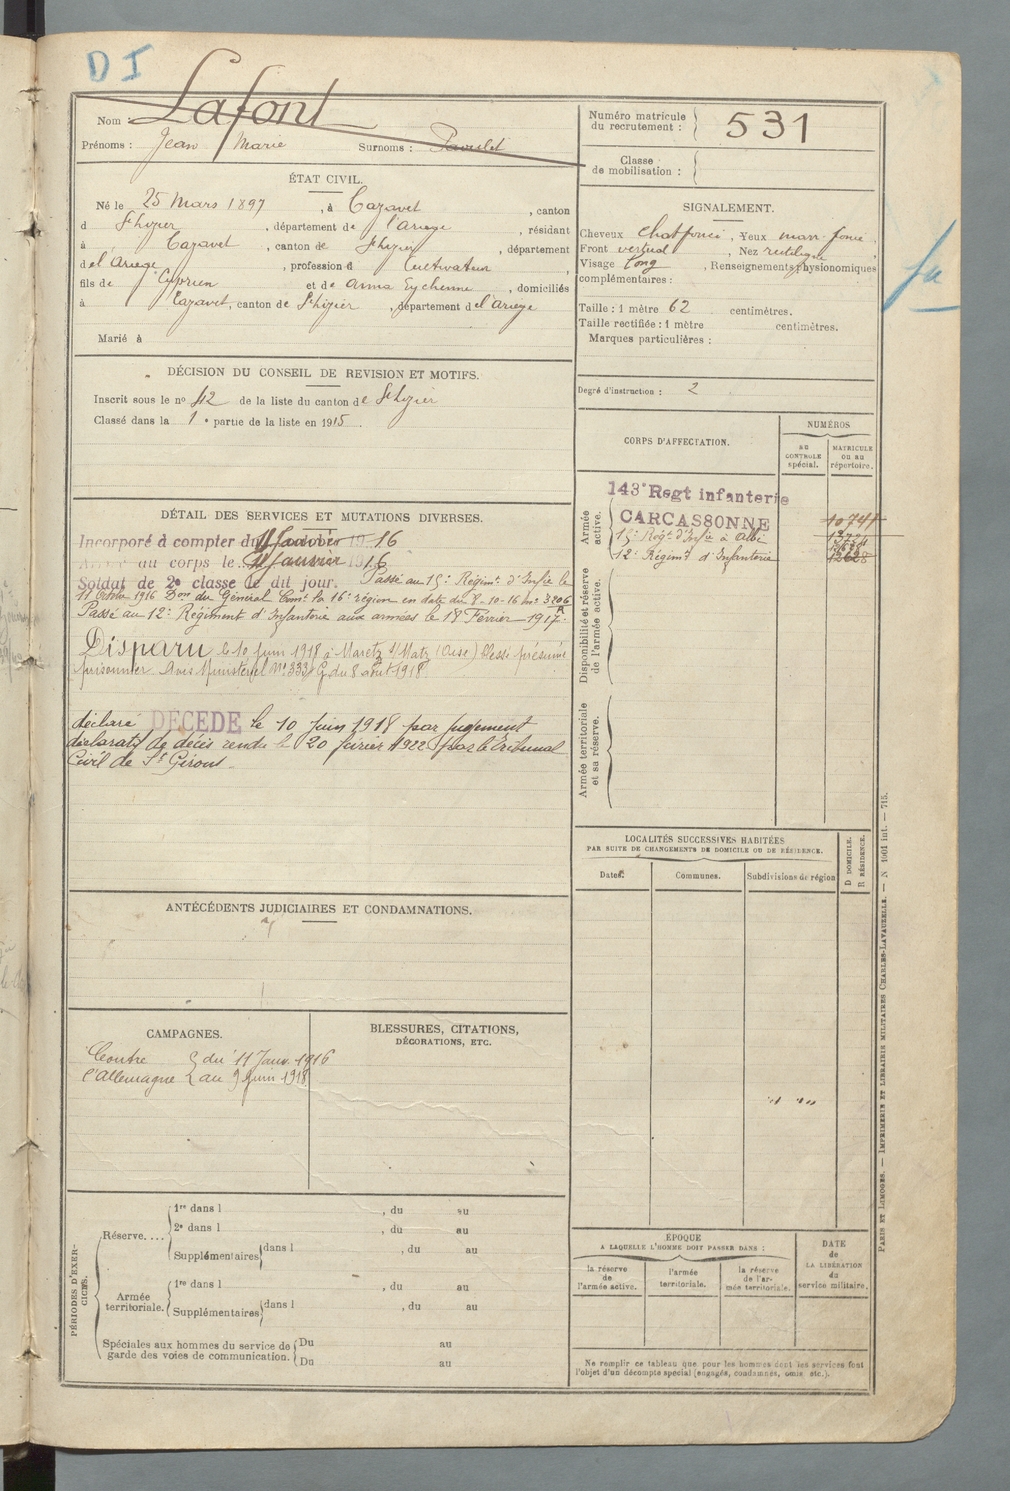 D I
Nom : Lafont
Prénoms : Jean Marie Surnoms :
Numéro matricule du recrutement : 531
Classe de mobilisation :
ÉTAT CIVIL.
Né le 25 Mars 1897, à Cazavet, canton
d St Lizier, département de l'Ariege, résidant
à Cazavet, canton de St Lizier, département
d el Ariege, profession d Cultivateur,
fils de J Cyprien et de Anna Eychenne, domiciliés
à Cazavet, canton de St Lizier, département d el Ariege
Marié à
SIGNALEMENT.
Cheveux chat foncé, Yeux marr. foncé,
Front vertical, Nez rectiligne
Visage long, Renseignements physionomiques
complémentaires :
Taille : 1 mètre 62 centimètres.
Taille rectifiée : 1 mètre centimètres.
Marques particulières :
Degré d'instruction : 2
DÉCISION DU CONSEIL DE REVISION ET MOTIFS.
Inscrit sous le no 42 de la liste du canton de St Lizier
Classé dans la 1e partie de la liste en 1915.
CORPS D'AFFECTATION.
NUMÉROS
AU CONTROLE spécial.
MATRICULE ou au répertoire.
Armée active.
143e Regt infanterie
CARCASSONNE
15e Régt d'Infie à Albi
12e Régimt d'Infanterie
Disponibilité et réserve de l'armée active.
Armée territoriale et sa réserve.
DÉTAIL DES SERVICES ET MUTATIONS DIVERSES.
Incorporé à compter du 11 Janvier 1916
au corps le 11 Janvier 1916
Soldat de 2e classe le dit jour. Passé au 15e Régimt d'Infie le
11 Octobre 1916 Don du Général Comt la 16e région en date du 8-10-16 no 3206
Passé au 12e Régiment d'Infanterie aux armées le 18 Février 1917.
Disparu le 10 juin 1918 à Maretz s/Matz (Oise) Blessé présumé
prisonnier Avis Ministériel No 333 G du 8 août 1918.
déclaré DÉCÉDÉ le 10 juin 1918 par jugement
déclaratif de décès rendu le 20 janvier 1922 par le Tribunal
Civil de St Girons.
LOCALITÉS SUCCESSIVES HABITÉES
PAR SUITE DE CHANGEMENTS DE DOMICILE OU DE RÉSIDENCE.
Dates.
Communes.
Subdivisions de région
D DOMICILE.
R RÉSIDENCE.
ANTÉCÉDENTS JUDICIAIRES ET CONDAMNATIONS.
CAMPAGNES.
Contre du 11 Janv. 1916
l'Allemagne au 9 Juin 1918
BLESSURES, CITATIONS,
DÉCORATIONS, ETC.
PÉRIODES D'EXERCICES.
Réserve....
1re dans l , du au
2e dans l , du au
Supplémentaires dans l , du au
Armée territoriale.
1re dans l , du au
Supplémentaires dans l , du au
Spéciales aux hommes du service de
garde des voies de communication.
Du au
Du au
ÉPOQUE
A LAQUELLE L'HOMME DOIT PASSER DANS :
la réserve de l'armée active.
l'armée territoriale.
la réserve de l'armée territoriale.
DATE de LA LIBÉRATION du service militaire.
Ne remplir ce tableau que pour les hommes dont les services font
l'objet d'un décompte spécial (engagés, condamnés, omis etc.).
PARIS ET LIMOGES. — IMPRIMERIE ET LIBRAIRIE MILITAIRES CHARLES-LAVAUZELLE. — N° 1001 int. — 715.